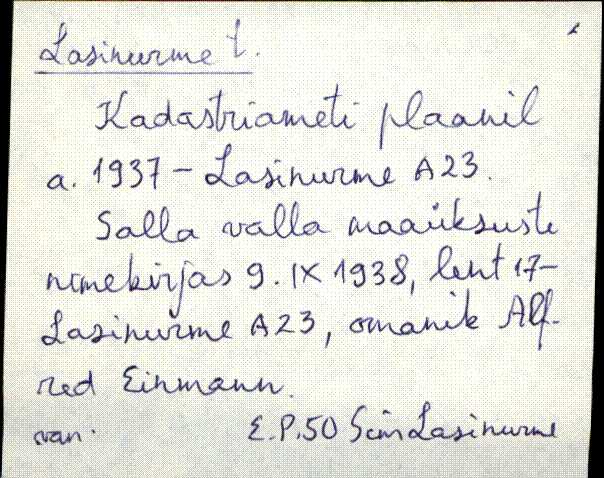 Lasinurme t.
Kadastriameti plaanil
a. 1937 - Lasinurme A23.
Salla valla maaüksuste
nimekirjas 9. IX 1938, leht 17-
Lasinurme A23, omanik Alf-
red Einmann.
van. E.P.50 Sim Lasinurme